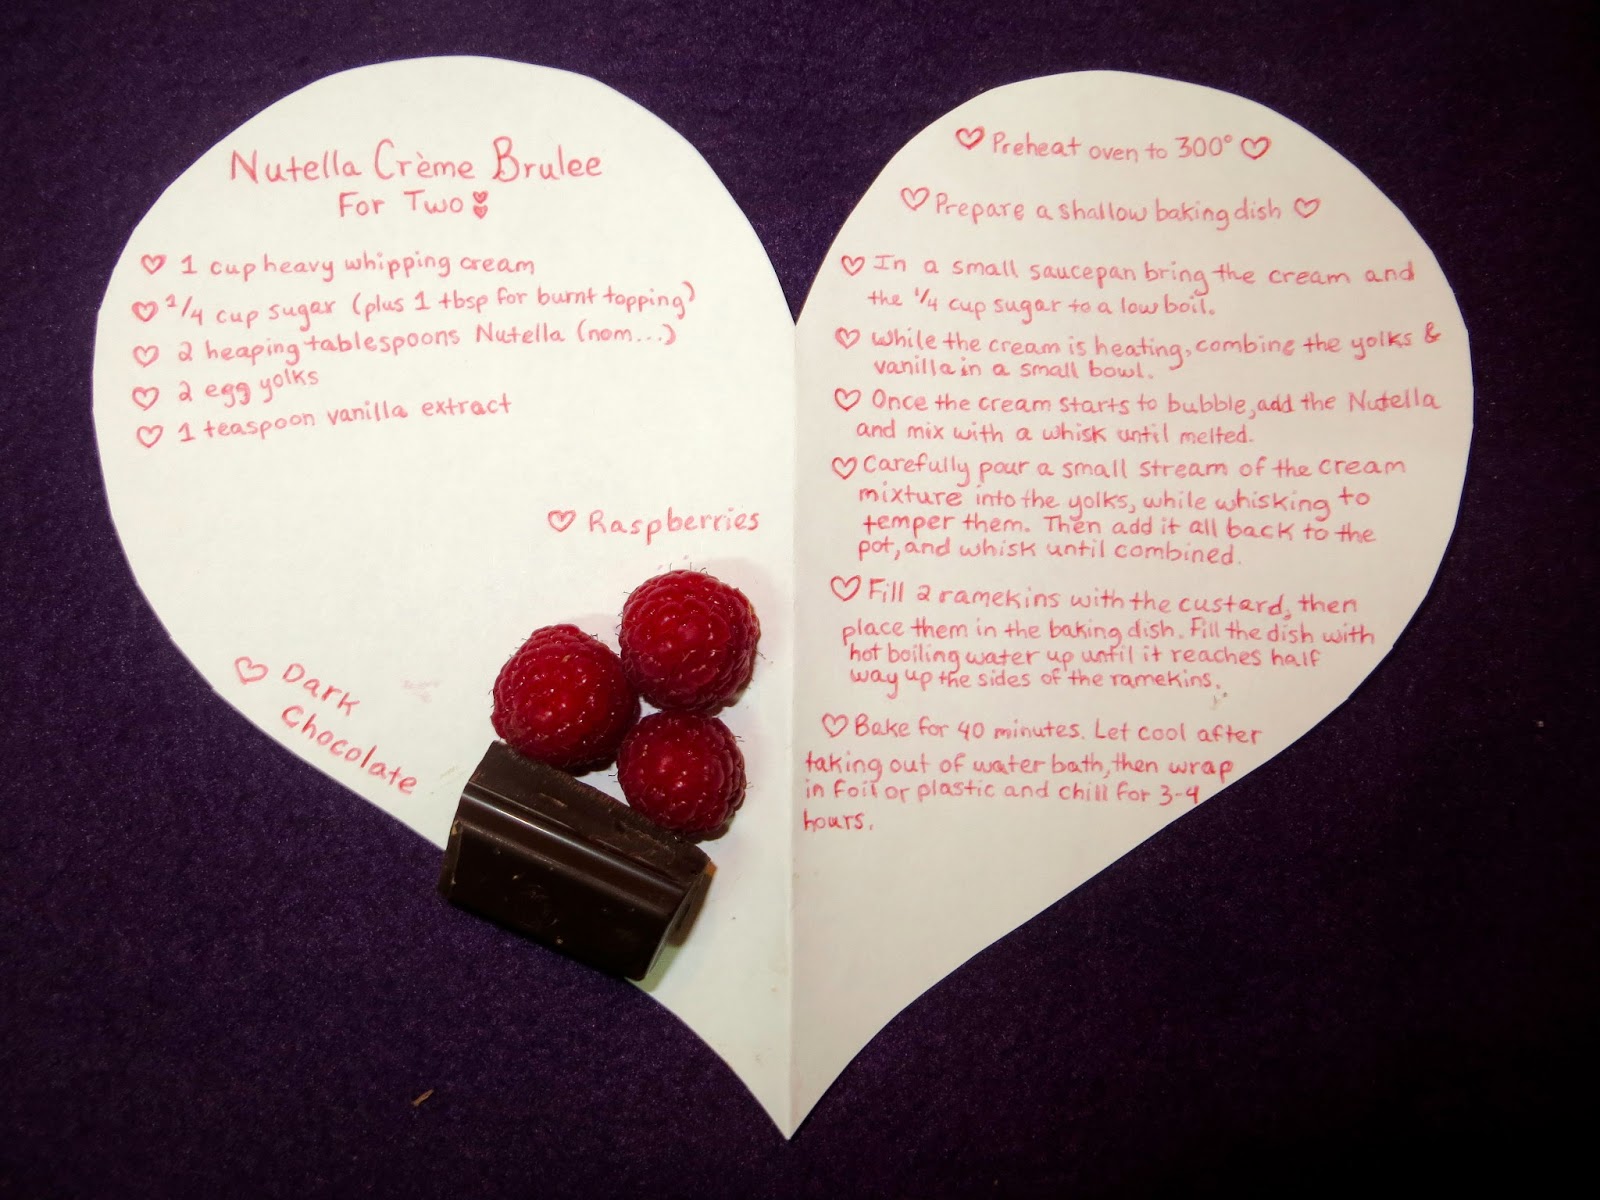 Nutella Crème Brulee
For Two
1 cup heavy whipping cream
1/4 cup sugar (plus 1 tbsp for burnt topping)
2 heaping tablespoons Nutella (nom...)
2 egg yolks
1 teaspoon vanilla extract
Raspberries
Dark
Chocolate
Preheat oven to 300°
Prepare a shallow baking dish
In a small saucepan bring the cream and
the 1/4 cup sugar to a low boil.
While the cream is heating, combine the yolks &
vanilla in a small bowl.
Once the cream starts to bubble, add the Nutella
and mix with a whisk until melted.
Carefully pour a small stream of the cream
mixture into the yolks, while whisking to
temper them. Then add it all back to the
pot, and whisk until combined.
Fill 2 ramekins with the custard, then
place them in the baking dish. Fill the dish with
hot boiling water up until it reaches half
way up the sides of the ramekins.
Bake for 40 minutes. Let cool after
taking out of water bath, then wrap
in foil or plastic and chill for 3-4
hours.